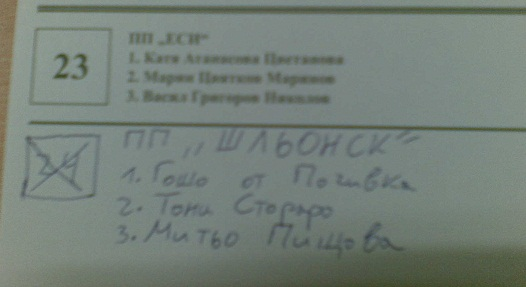 23
ПП „ЕСИ“
1. Катя Атанасова Цветанова
2. Марин Цветков Маринов
3. Васил Григоров Николов
24
ПП „ШЛЬОНСК“
1. Гошо от Почивка
2. Тони Стораро
3. Митьо Пищова